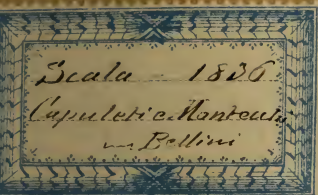 Scala - 1836
Capuleti e Montecchi
Bellini